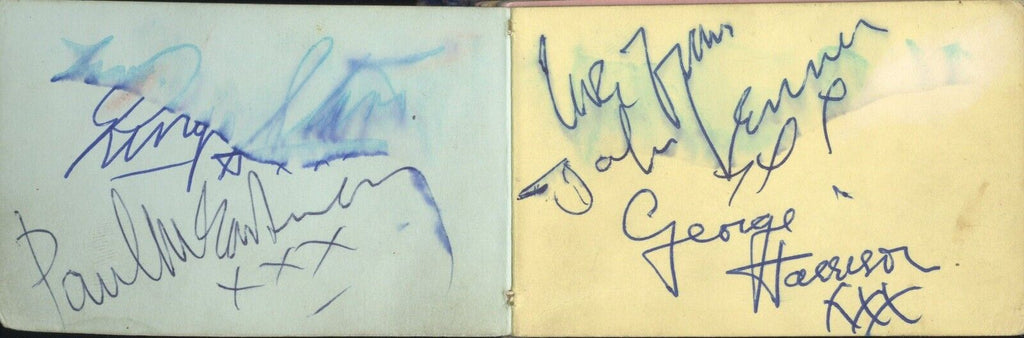 Ringo Starr
xx
Paul McCartney
xxx
love from
John Lennon
xxx
George
Harrison
xxx